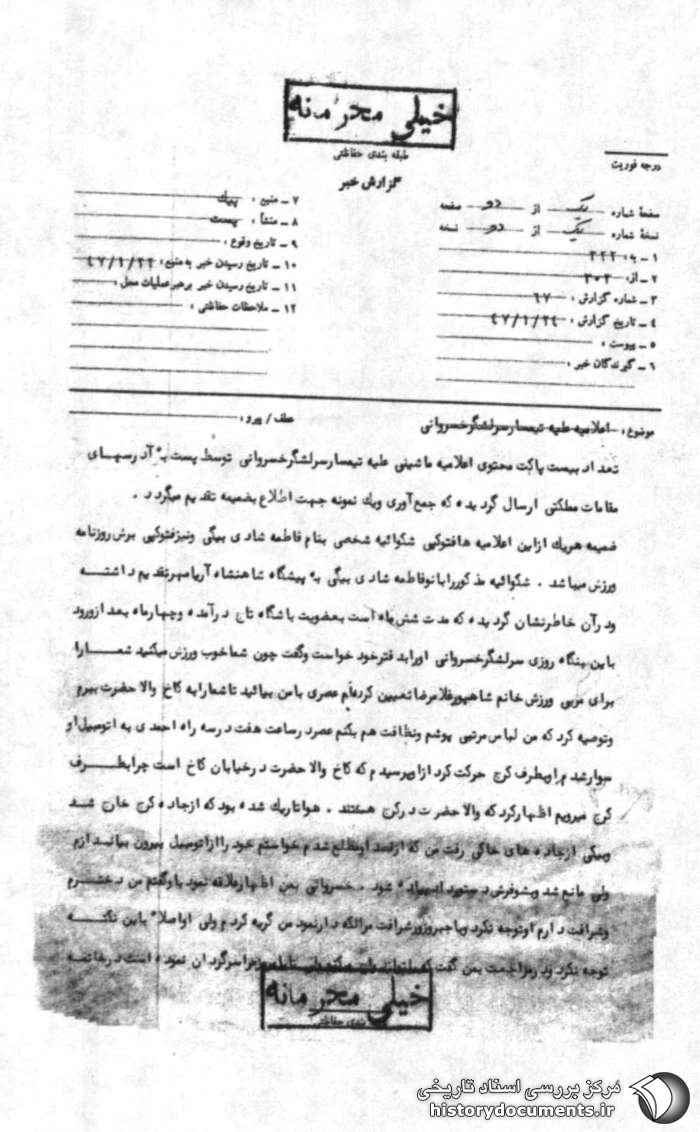 خیلی محرمانه
طبقه بندی حفاظتی
درجه فوریت
گزارش خبر
صفحه شماره یک از دو صفحه
نسخه شماره یک از دو نسخه
۱ - به : ۳۲۲
۲ - از : ۳۰۲
۳ - شماره گزارش : ۶۷
۴ - تاریخ گزارش : ۴۷/۱/۲۴
۵ - پیوست :
۶ - گیرندگان خبر :
۷ - منبع : پیك
۸ - منشأ : پست
۹ - تاریخ وقوع :
۱۰ - تاریخ رسیدن خبر به منبع : ۴۷/۱/۲۲
۱۱ - تاریخ رسیدن خبر برهبر عملیات محل :
۱۲ - ملاحظات حفاظتی :
موضوع : - اعلامیه علیه تیمسار سرلشگر خسروانی
عطف / پیرو :
تعداد بیست پاکت محتوی اعلامیه ماشینی علیه تیمسار سرلشگر خسروانی توسط پست به آدرسهای
مقامات مملکتی ارسال گردیده که جمع آوری ویك نمونه جهت اطلاع بضمیمه تقدیم میگردد .
ضمیمه هریك ازاین اعلامیه ها فتوکپی شکوائیه شخصی بنام فاطمه شادی بیگی ونیز فتوکپی برش روزنامه
ورزش میباشد . شکوائیه مذکور را بانو فاطمه شادی بیگی به پیشگاه شاهنشاه آریامهر تقدیم داشته
ودرآن خاطرنشان گردیده که مدت شش ماه است بعضویت باشگاه تاج درآمده وچهارماه بعد ازورود
باین بنگاه روزی سرلشگر خسروانی اورا بدفتر خود خواست وگفت چون شما خوب ورزش میکنید شما را
برای مربی ورزش خانم شاهپور غلامرضا تعیین کرده‌ام عصری با من بیائید تا شما را به کاخ والا حضرت ببرم
وتوصیه کرد که من لباس مرتبی پوشم ونظافت هم بکنم عصر در ساعت هفت در سه راه احمدی به اتومبیل او
سوار شدم اوبطرف کرج حرکت کرد ازاو پرسیدم که کاخ والا حضرت در خیابان کاخ است چرا بطرف
کرج میرویم اظهارکرد که والا حضرت در کرج هستند . هوا تاریك شده بود که ازجاده کرج خارج شد
وبیکی ازجاده های خاکی رفت من که ازقصد او مطلع شدم خواستم خود را ازاتومبیل بیرون بیاندازم
ولی مانع شد وبشوفرش دستور داد پیاده شود . خسروانی بمن اظهار علاقه نمود باو گفتم من دخترم
وشرافت دارم اوتوجه نکرد وبا جبر وزور شرافت مرا لکه دار نمود من گریه کردم ولی او اصلا" باین نکته
توجه نکرد ودر مراجعت بمن گفت که سرگردان نموده است درخاتمه
خیلی محرمانه
بندی حفاظتی
مرکز بررسی اسناد تاریخی
historydocuments.ir